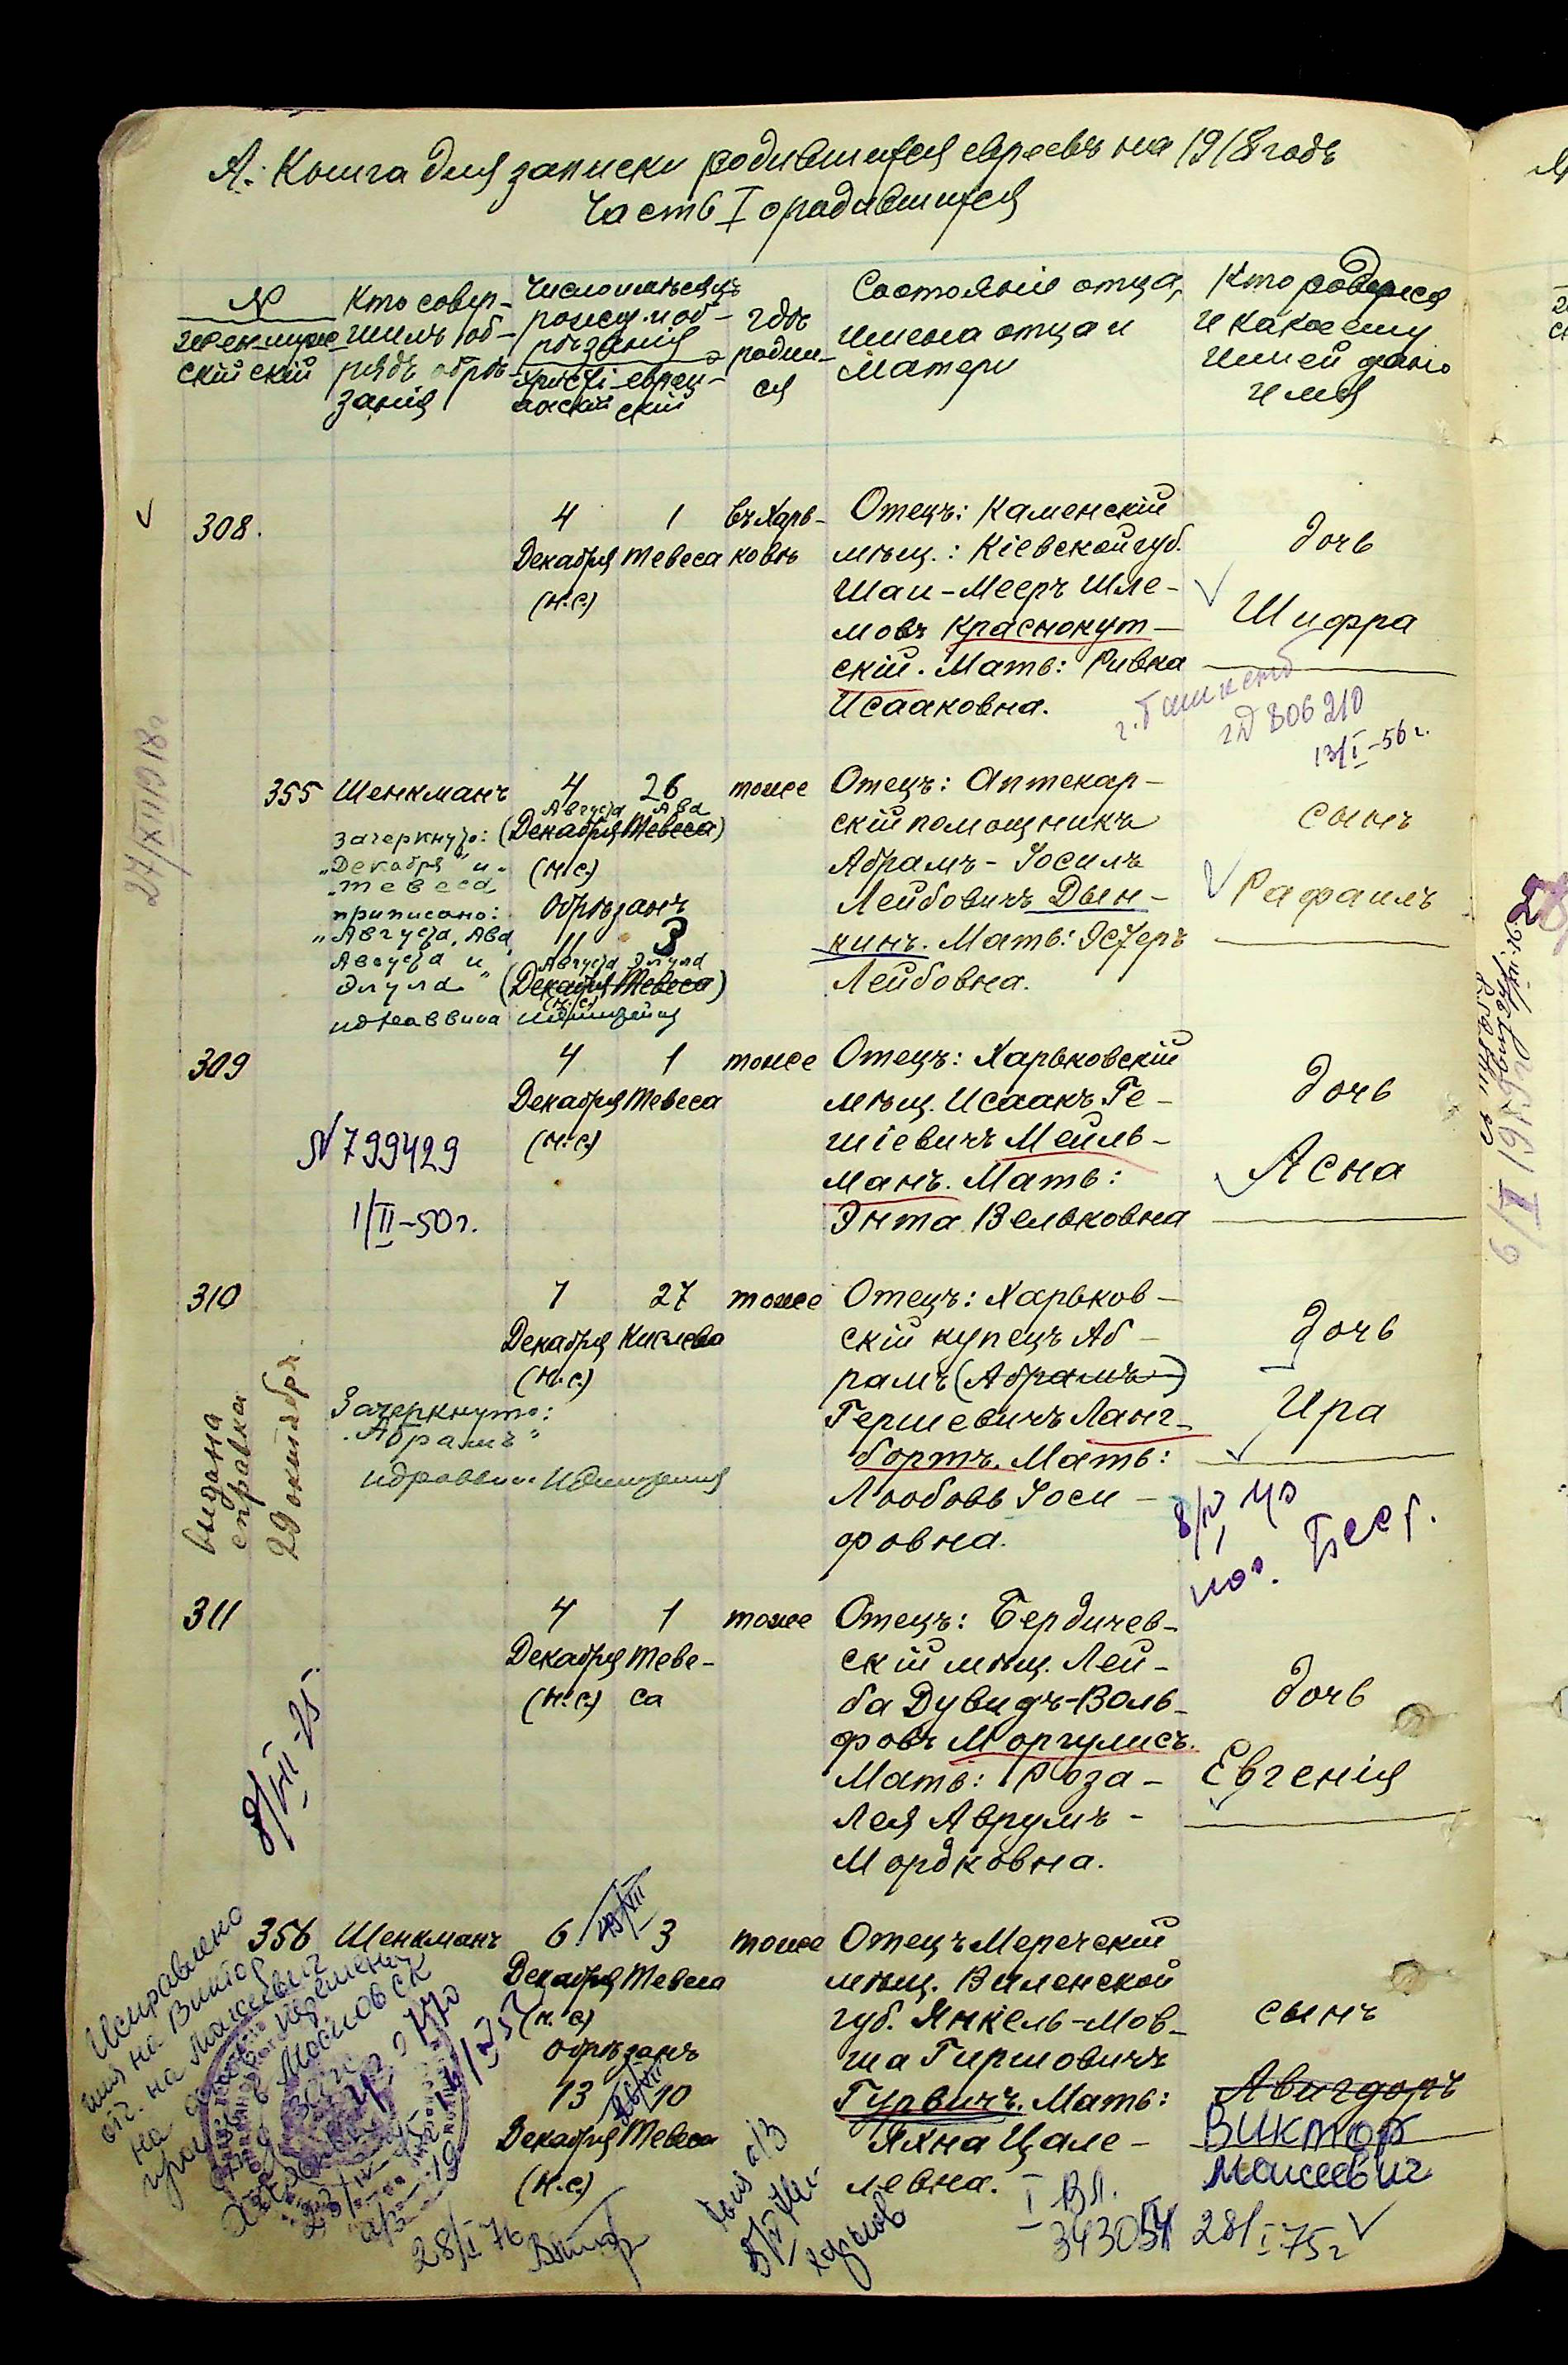 А. Книга для записки родившихся евреевъ на 1918 годъ
Часть I о родившихся
N
женскій мужескій
Кто совер-
шилъ об-
рядъ обрѣ-
занія
Число и мѣсяцъ
рожд. и об-
рѣзанія
Христі-
анскій
еврей-
скій
Гдѣ
родил-
ся
Состояніе отца,
имена отца и
матери
Кто родился
и какое ему
или ей дано
имя
308.
4
Декабря
(н.с.)
1
Тевеса
въ Харь-
ковѣ
Отецъ: Каменскій
мѣщ.: Кіевской губ.
Шаи-Мееръ Шле-
мовъ Краснокут-
скій. Мать: Ривка
Исааковна.
дочь
Шифра
г. Ташкент
806210
13/I-56 г.
27/XII 1918 г
355
Шенкманъ
зачеркнуто:
"Декабря" и
"Тевеса"
приписано:
"Августа, Ава
Августа и
Элула"
4
Августа
(Декабря
(н.с.)
26
Ава
Тевеса)
Обрѣзанъ
11
Августа
(Декабря
(н.с.)
3
Элула
Тевеса)
тоже
Отецъ: Аптекар-
скій помощникъ
Абрамъ-Іосилъ
Лейбовичъ Дын-
кинъ. Мать: Эстеръ
Лейбовна.
сынъ
Рафаилъ
309
N 799429
1/II-50 г.
4
Декабря
(н.с.)
1
Тевеса
тоже
Отецъ: Харьковскій
мѣщ. Исаакъ Ге-
шіевичъ Мейль-
манъ. Мать:
Энта Вельковна
дочь
Асна
310
выдана
справка
29 октября.
Зачеркнуто:
"Абрамъ"
1
Декабря
(н.с.)
27
Кислева
тоже
Отецъ: Харьков-
скій купецъ Аб-
рамъ (Абрамъ)
Гершевичъ Ланг-
бортъ. Мать:
Любовь Іоси-
фовна.
дочь
Ира
311
8/VII-25
4
Декабря
(н.с.)
1
Теве-
са
тоже
Отецъ: Бердичев-
скій мѣщ. Лей-
ба Дувидъ-Воль-
фовъ Моргулисъ.
Мать: Роза-
Лея Аврумъ-
Мордковна.
дочь
Евгенія
356
Шенкманъ
6
Декабря
(н.с.)
3
Тевеса
обрѣзанъ
13
Декабря
(н.с.)
10
Тевеса
тоже
Отецъ Меречскій
мѣщ. Виленской
губ. Янкель-Мов-
ша Гиршовичъ
Гурвичъ. Мать:
Яхна Цале-
левна.
сынъ
Авигдоръ
Виктор
Моисеевич
Исправлено
имя на Виктор
отч. на Моисеевич
28/I 76
343054
28/I 75 г